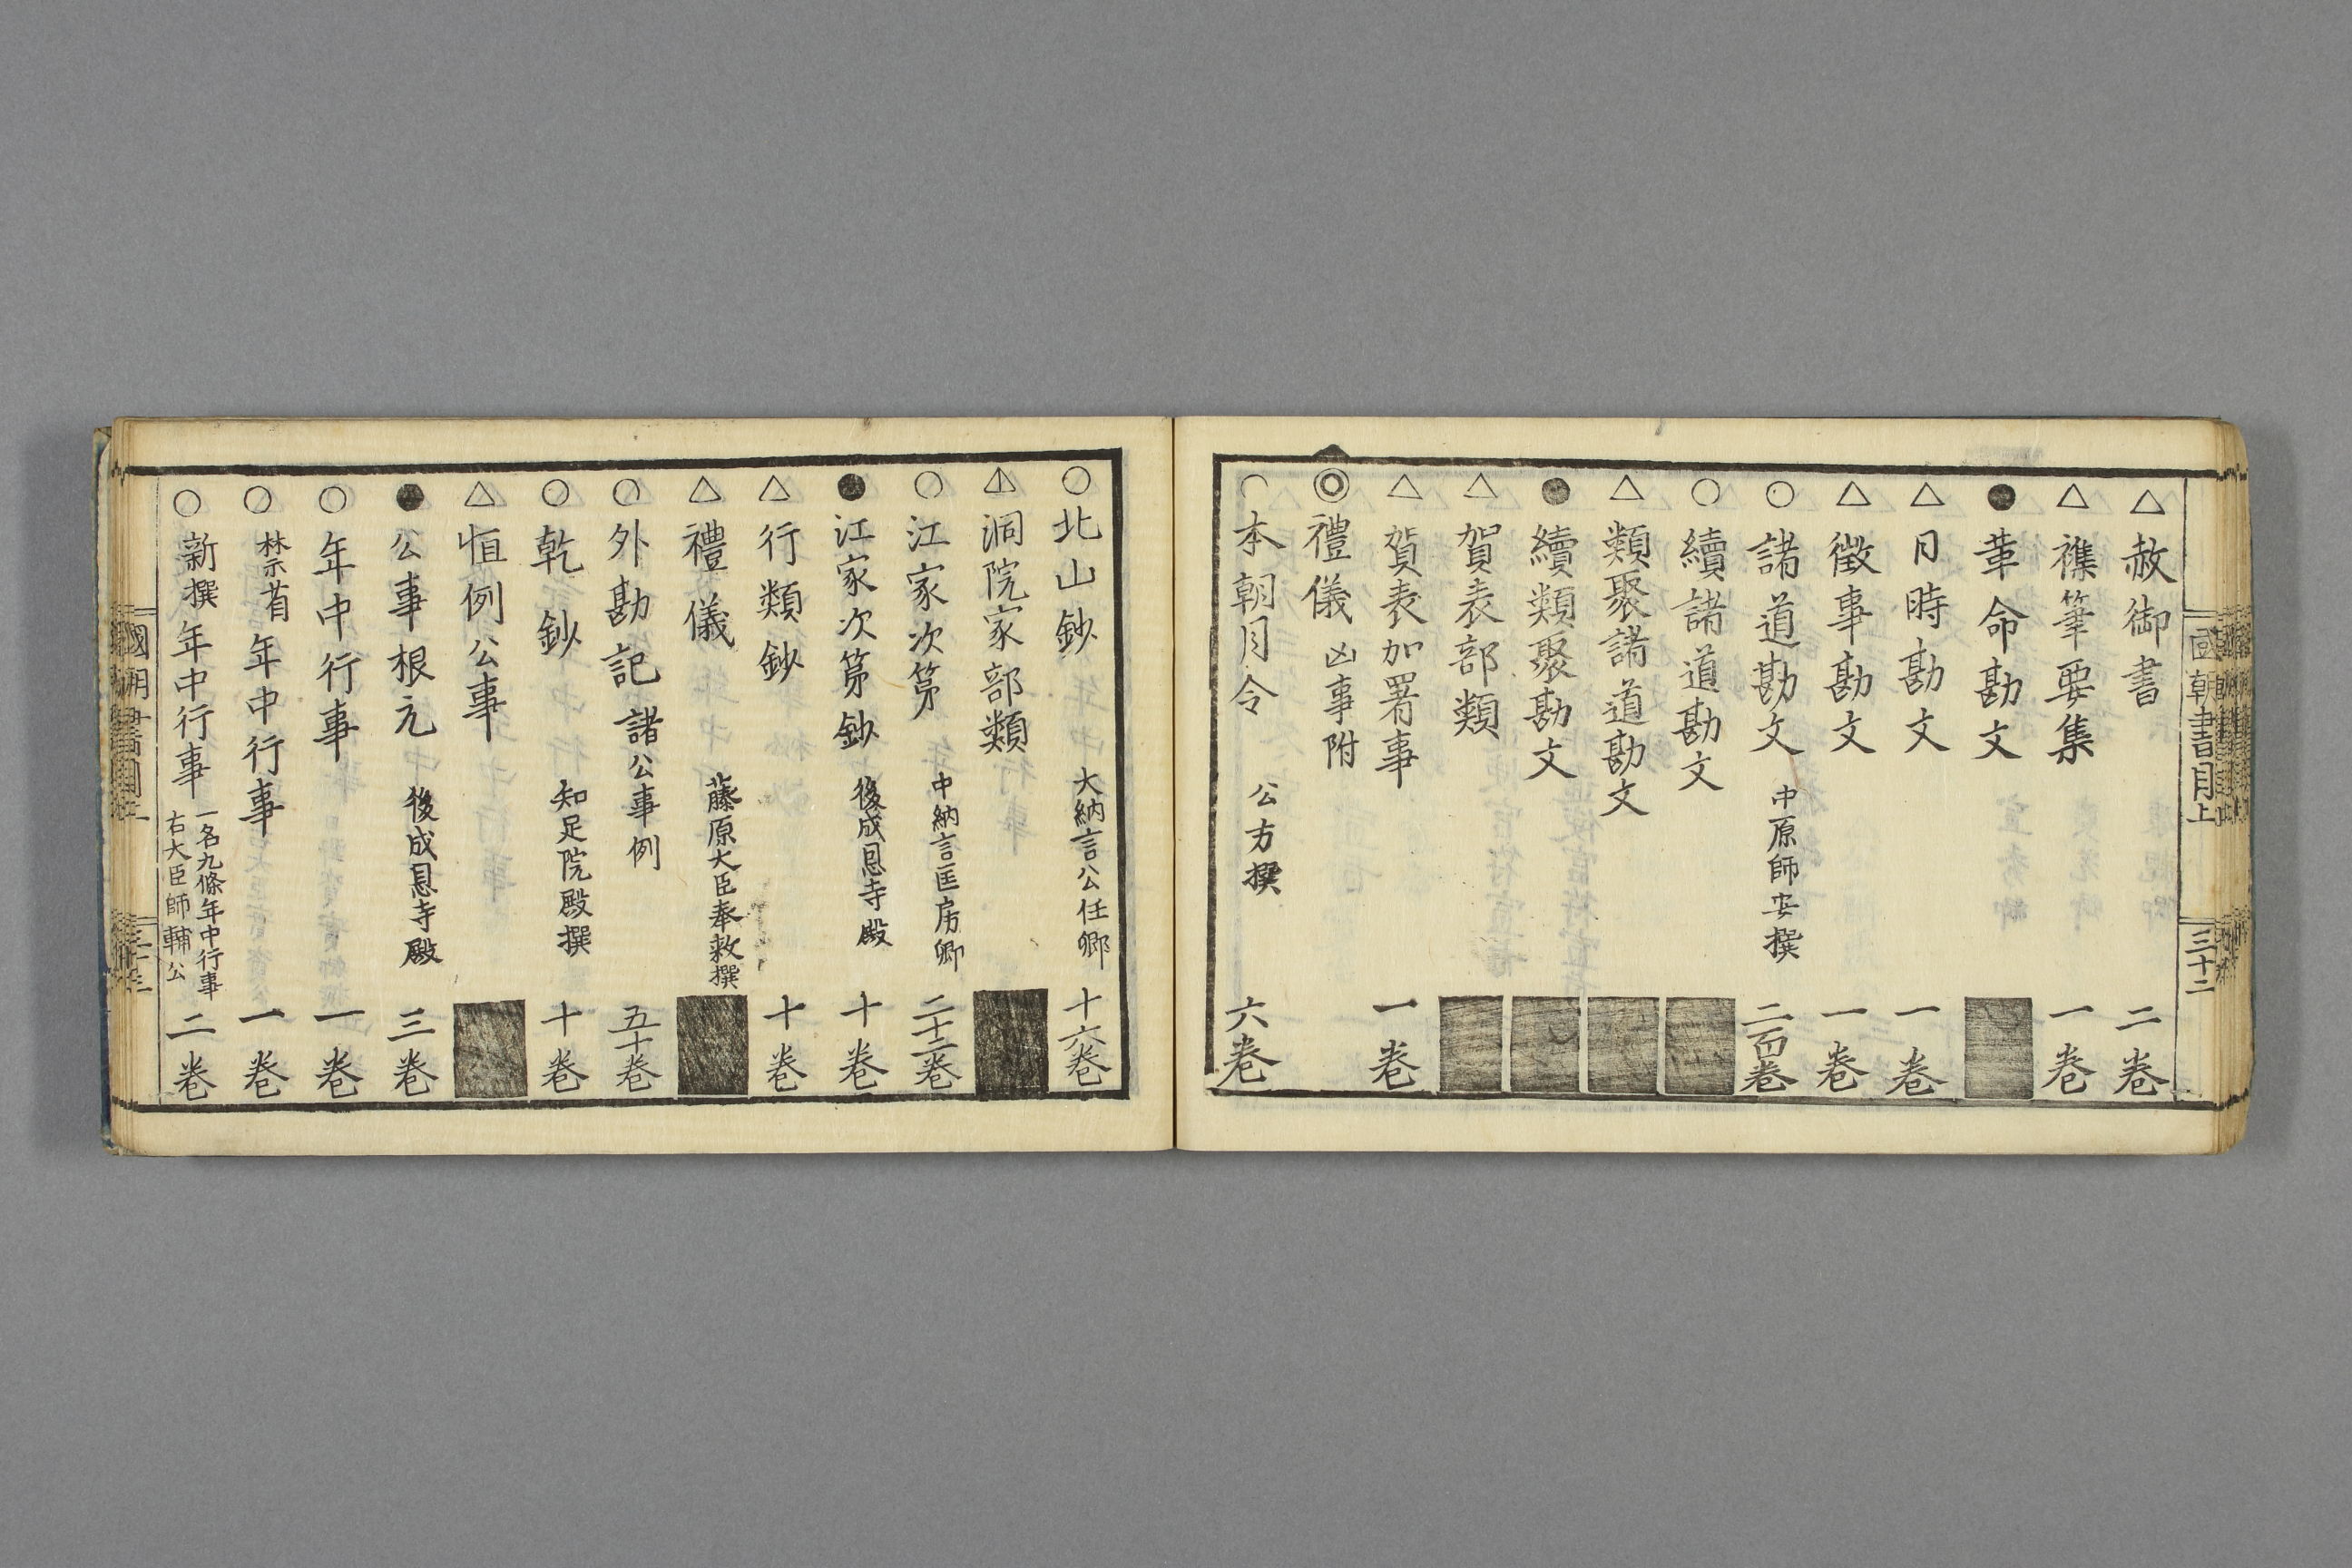 國朝書目上 三十二
△赦御書 二卷
△襍筆要集 一卷
●革命勘文
△日時勘文 一卷
△徵事勘文 一卷
○諸道勘文 中原師安撰 二百卷
○續諸道勘文
△類聚諸道勘文
●續類聚勘文
△賀表部類
△賀表加署事 一卷
◎禮儀 凶事附
○本朝月令 公方撰 六卷
○北山鈔 大納言公任卿 十六卷
△洞院家部類
○江家次第 中納言匡房卿 二十二卷
●江家次第鈔 後成恩寺殿 十卷
△行類鈔 十卷
△禮儀 藤原大臣奉敕撰
○外勘記 諸公事例 五十卷
○乾鈔 知足院殿撰 十卷
△恒例公事
●公事根元 後成恩寺殿 三卷
○年中行事 一卷
○禁省年中行事 一卷
○新撰年中行事 一名九條年中行事 右大臣師輔公 二卷
國朝書目上